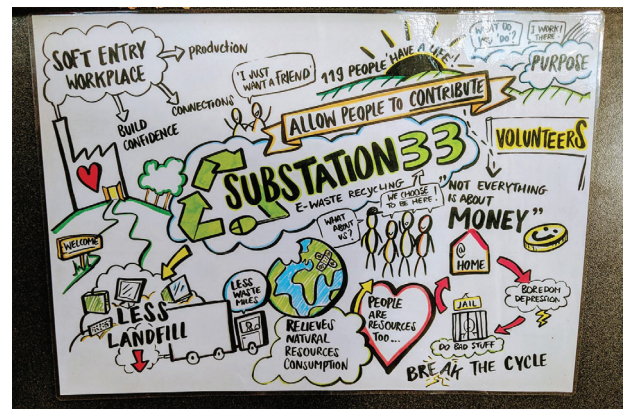 SOFT ENTRY
WORKPLACE
production
CONNECTIONS
BUILD
CONFIDENCE
'I JUST
WANT A FRIEND'
119 PEOPLE 'HAVE A LIFE!'
WHAT DO
YOU 'DO'?
I WORK
THERE
PURPOSE
ALLOW PEOPLE TO CONTRIBUTE
VOLUNTEERS
SUBSTATION33
E-WASTE RECYCLING
WE CHOOSE
TO BE HERE!
WHAT
ABOUT
US?
"NOT EVERYTHING
IS ABOUT
MONEY"
WELCOME
LESS
LANDFILL
LESS
WASTE
MILES
RELIEVES
NATURAL
RESOURCES
CONSUMPTION
PEOPLE
ARE
RESOURCES
TOO...
@
HOME
BOREDOM
DEPRESSION
JAIL
DO BAD STUFF
BREAK THE CYCLE